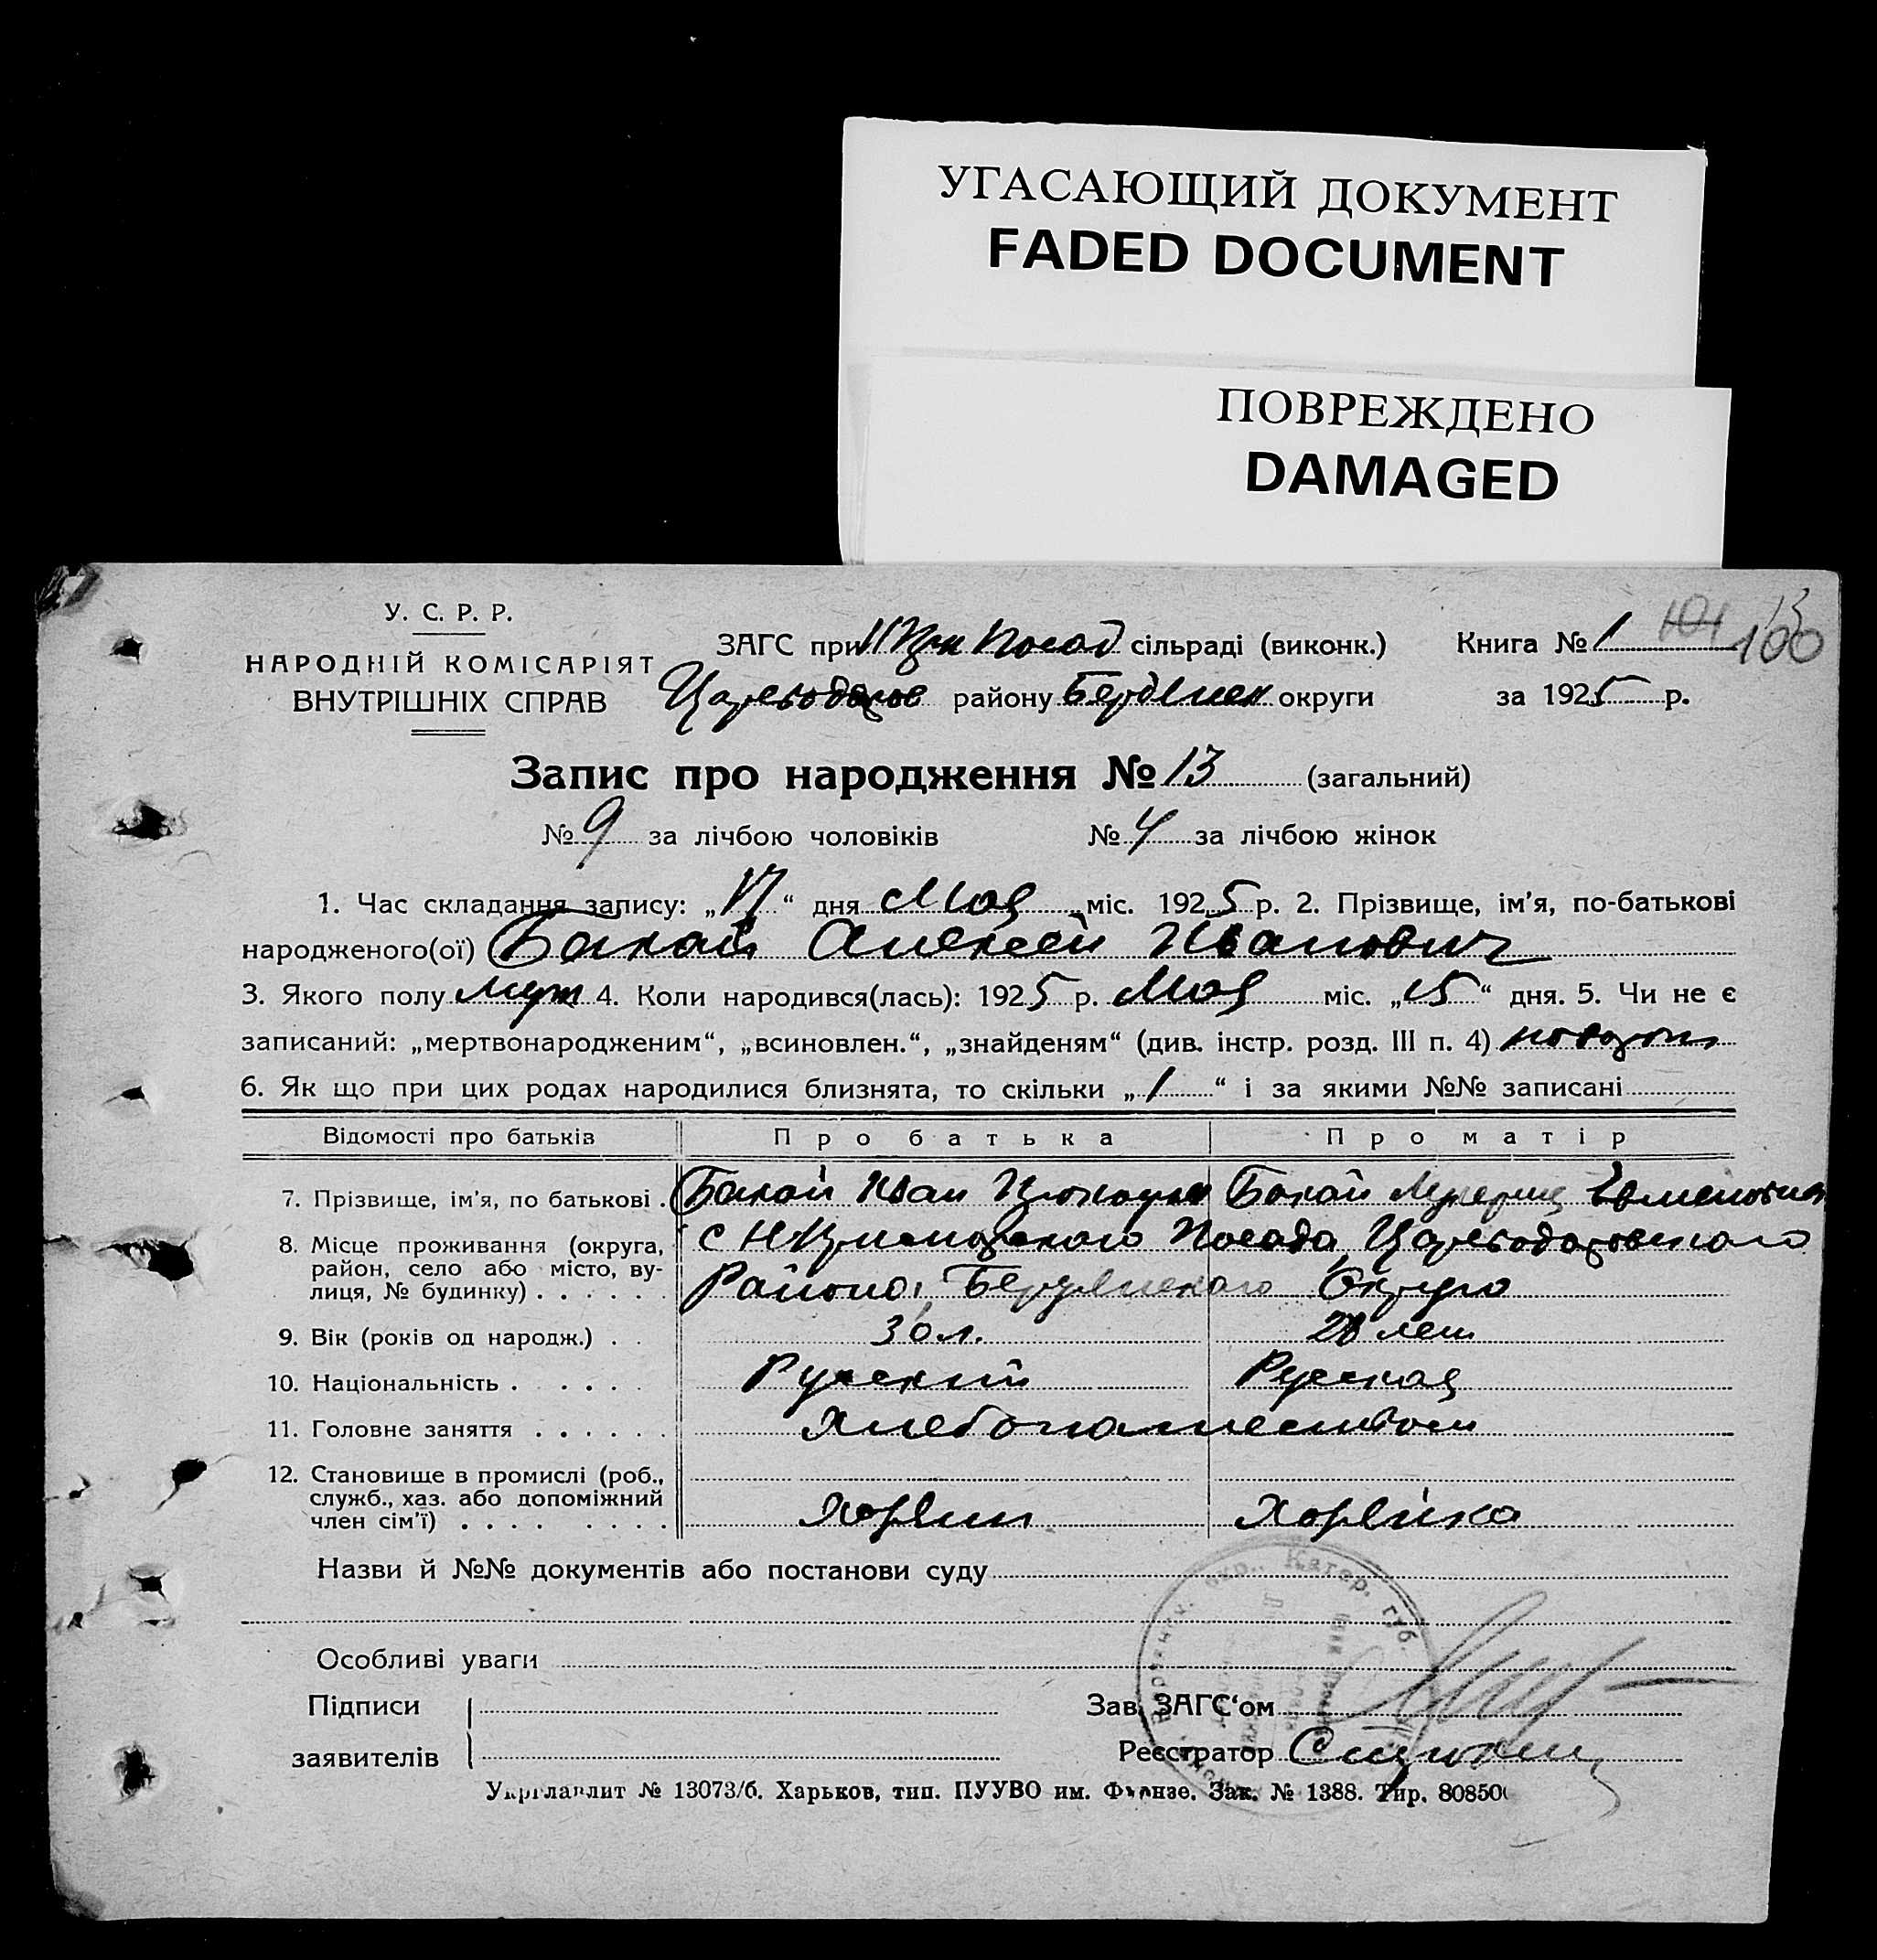 УГАСАЮЩИЙ ДОКУМЕНТ
FADED DOCUMENT
ПОВРЕЖДЕНО
DAMAGED
У. С. Р. Р.
НАРОДНІЙ КОМІСАРІЯТ
ВНУТРІШНІХ СПРАВ
ЗАГС при Посад сільраді (виконк.) Книга № 1 101 100 13
району Бердянск округи за 1925 р.
Запис про народження № 13 (загальний)
№ 9 за лічбою чоловіків № 4 за лічбою жінок
1. Час складання запису: „17“ дня Мая міс. 1925 р. 2. Прізвище, ім’я, по-батькові
народженого(ої) Бакай Алексей Иванович
3. Якого полу муж 4. Коли народився(лась): 1925 р. Мая міс. „15“ дня. 5. Чи не є
записаний: „мертвонародженим“, „всиновлен.“, „знайденям“ (див. інстр. розд. III п. 4)
6. Як що при цих родах народилися близнята, то скільки „1“ і за якими №№ записані
Відомості про батьків Про батька Про матір
7. Прізвище, ім’я, по батькові . Бакай Иван Бакай
8. Місце проживання (округа, район, село або місто, вулиця, № будинку) . . . . . . с Посада, Цареводаровского
Района, Бердянского Округа
9. Вік (років од народж.) . . 30 л. 28 лет
10. Національність . . . . . Русский Русская
11. Головне заняття . . . . . . Хлебопашеством
12. Становище в промислі (роб., служб., хаз. або допоміжний член сім’ї) . . . . . . . . Хозяин Хозяйка
Назви й №№ документів або постанови суду
Особливі уваги
Підписи
заявителів
Зав. ЗАГС‘ом
Реєстратор
Бердянск. окр., Катер. губ.
Укрглавлит № 13073/б. Харьков, тип. ПУУВО им. Фрунзе. Зак. № 1388. Тир. 80850